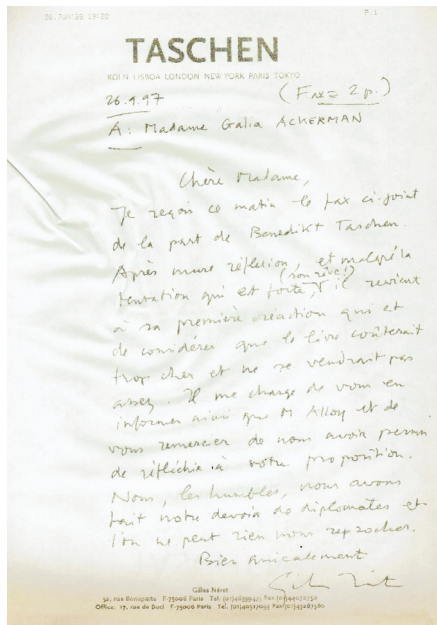 P.1
TASCHEN
KÖLN LISBOA LONDON NEW YORK PARIS TOKYO
26.9.97 (Fax = 2 p.)
A: Madame Galia ACKERMAN
Chère Madame,
Je reçois ce matin le fax ci-joint
de la part de Benedikt Taschen.
Après mure réflection, et malgré la
tentation qui est forte, (son rêve!) il revient
à sa première réaction qui et
de considérer que le livre coûterait
trop cher et ne se vendrait pas
assez. Il me charge de vous en
informer ainsi que M Alloy et de
vous remercier de nous avoir permis
de réfléchir à votre proposition.
Nous, les humbles, nous avons
fait notre devoir de diplomates et
l'on ne peut rien nous reprocher.
Bien amicalement
Gilles Néret
52, rue Bonaparte F-75006 Paris Tel.
Office: 17, rue de Buci F-75006 Paris Tel.